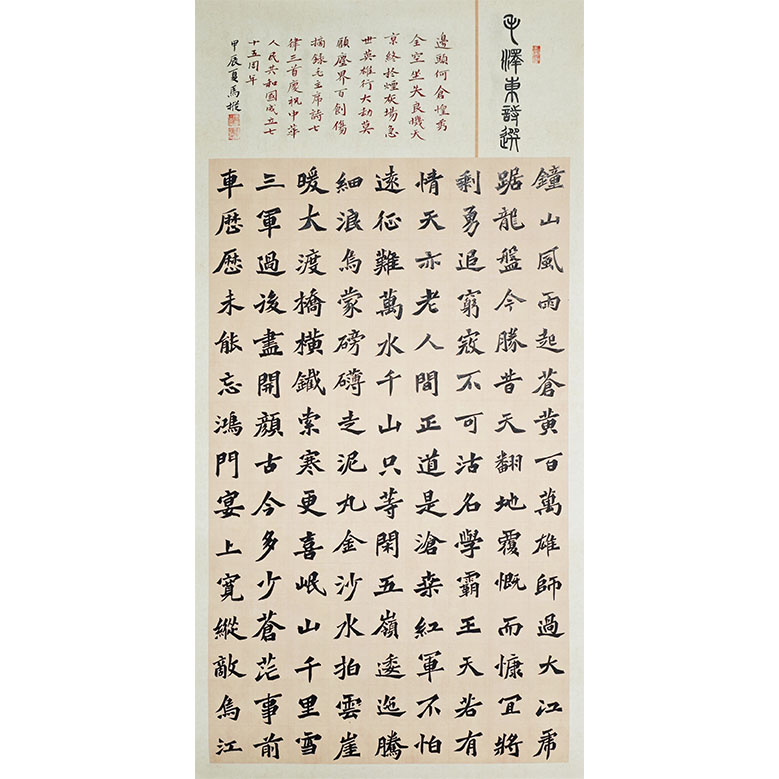 毛澤東詩選
鐘山風雨起蒼黃百萬雄師過大江虎
踞龍盤今勝昔天翻地覆慨而慷宜將
剩勇追窮寇不可沽名學霸王天若有
情天亦老人間正道是滄桒紅軍不怕
遠征難萬水千山只等閑五嶺逶迤騰
細浪烏蒙磅礴走泥丸金沙水拍雲崖
暖大渡橋橫鐵索寒更喜岷山千里雪
三軍過後盡開顏古今多少蒼茫事前
車歷歷未能忘鴻門宴上寬縱敵烏江
邊頭何倉惶秀
全空坐失良機天
京終於煙灰場急
世英雄行大劫莫
願塵界百創傷
摘錄毛主席詩七
律三首慶祝中華
人民共和國成立七
十五周年
甲辰夏馬樅